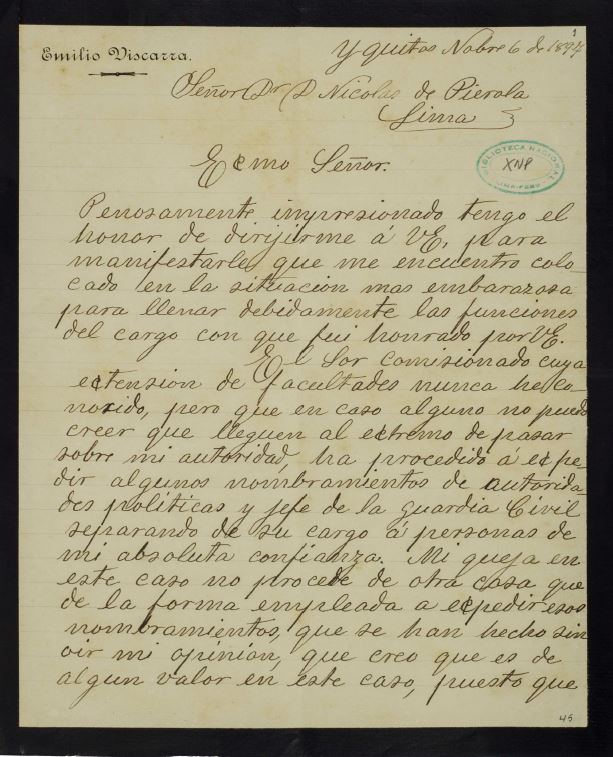 1
Emilio Viscarra.
Yquitos Nobre 6 de 1897
Señor Dr D Nicolas de Pierola
Lima
BIBLIOTECA NACIONAL
XNP
LIMA-PERU
Ecmo Señor.
Penosamente impresionado tengo el
honor de dirijirme á VE, para
manifestarle que me encuentro colo
cado en la situacion mas embarazosa
para llenar debidamente las funciones
del cargo con que fui honrado por VE.
El Sor comisionado cuya
ectension de facultades nunca he co-
nocido, pero que en caso alguno no puedo
creer que lleguen al ectremo de pasar
sobre mi autoridad, ha procedido á ecpe-
dir algunos nombramientos de autorida-
des politicas y jefe de la Guardia Civil
separando de su cargo á personas de
mi absoluta confianza. Mi queja en
este caso no procede de otra cosa que
de la forma empleada a ecpedir esos
nombramientos, que se han hecho sin
oir mi opinión, que creo que es de
algun valor en este caso, puesto que
45